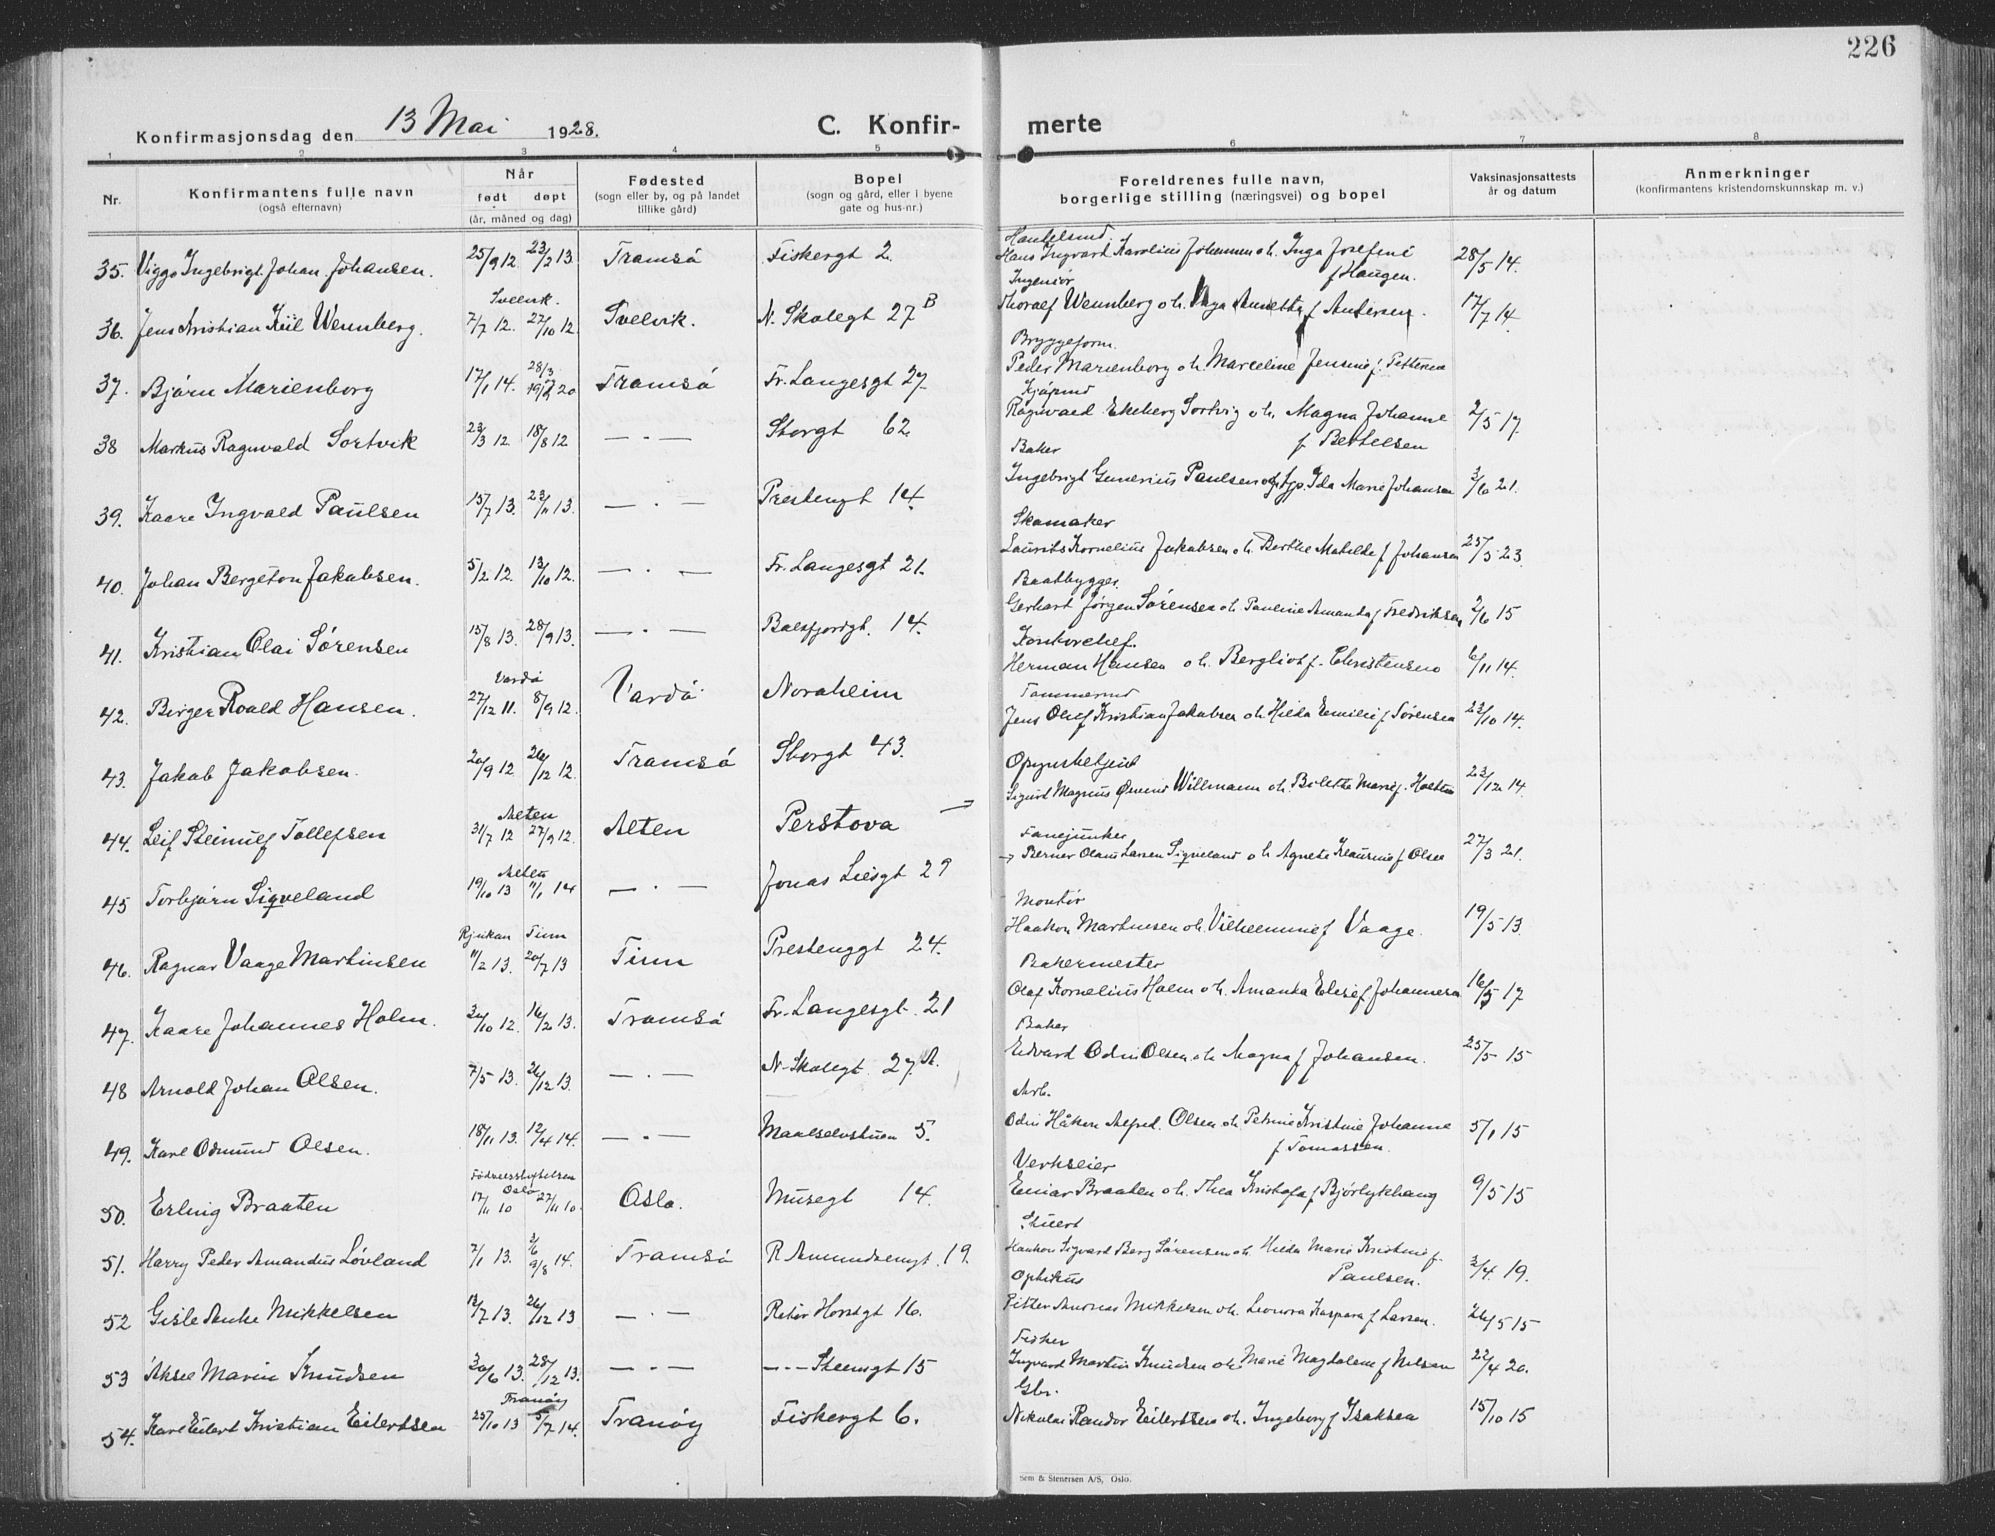 226
Konfirmasjonsdag den 13 Mai 1928. C. Konfir- merte
1 2 3 4 5 6 7 8
Nr. Konfirmantens fulle navn (også efternavn) Når født døpt (år, måned og dag) Fødested (sogn eller by, og på landet tillike gård) Bopel (sogn og gård, eller i byene gate og hus-nr.) Foreldrenes fulle navn, borgerlige stilling (næringsvei) og bopel Vaksinasjonsattests år og datum Anmerkninger (konfirmantens kristendomskunnskap m. v.)
35. Viggo Ingebrigt Johan Johansen. 25/9 12. 23/2 13. Tromsö Fiskergt 2. Hans Ingvart Karolius Johansen o h. Inga Josefine f Haugen. 28/5 14.
Svelvik.
36. Jens Kristian Kiil Wennberg. 7/7 12. 27/10 12. Svelvik. N. Skolegt 27 B Ingeniør Thoralf Wennberg o h. Inga Annetta f Andersen. 17/7 14.
37. Bjørn Marienborg 17/1 14. 28/3 20 Tromsö Fr. Langesgt 27. Bryggeform. Peder Marienborg o h. Marceline Jensine f. Pettersen
38 Markus Ragnvald Sortvik 23/3 12 18/8 12 — . — Storgt 62. Ragnvald Ekeberg Sortvig o h. Magna Johanne f Bertelsen 2/5 17.
39. Kaare Ingvald Paulsen 15/7 13. 23/11 13. — . — Prestengt 14. Baker Ingebrigt Gunerius Paulsen Ida Marie Johansen 3/6 21.
40. Johan Bergeton Jakobsen. 5/2 12. 13/10 12. — . — Fr. Langesgt 21. Skomaker Laurits Kornelius Jakobsen o h. Berthe Matilde f Johansen 25/5 23.
41. Kristian Olai Sørensen 15/8 13. 28/9 13. — . — Balsfjordgt. 14. Baatbygger. Gerhart Jørgen Sørensen o h. Pauline Amanda f Fredriksen 2/6 15
Vardø
42. Birger Roald Hansen. 27/12 11. 8/9 12. Vardö Noraheim Kontorchef. Herman Hansen o h. Bergliot f. Christensen 6/11 14.
43. Jakob Jakobsen. 20/9 12 26/12 12. Tromsö Storgt 43. Tømmermd Jens Olef Kristian Jakobsen o h. Hilda Emilie f Sørensen 23/10 14.
Alten
44. Leif Steinulf Tollefsen 31/7 12 27/9 12. Alten Perstova Sigurd Magnus Willmann o h. Marie f. Holten 23/12 14.
Alten
45 Torbjørn Siqveland 19/10 13 11/1 14 — . — Jonas Liesgt 29 Fanejunker Berner Olaus Larsen Siqveland o h Agnete Klausine f Olsen 27/3 21.
Rjukan Tinn
46. Ragnar Vaage Martinsen 11/2 13. 20/7 13 Tinn Prestenggt 24. Montør Haakon Martinsen o h. Vilhelmine f Vaage. 19/5 13.
47. Kaare Johannes Holm. 30/10 12. 16/2 13. Tromsö Fr. Langesgt. 21 Bakermester Olaf Kornelius Holm o h. Amanda Elisef Johannesen 16/5 17
48 Arnold Johan Olsen. 7/5 13. 26/12 13. — . — N. Skolegt 27. A. Baker Edvard Odin Olsen o h. Magna f Johansen. 25/5 15
49. Karl Odmund Olsen. 18/11 13. 12/4 14. — . — Maalselvstuen 5. Arb. Odin Håkon Alfred. Olsen o h. Petrine Kristine Johanne f Tomassen. 5/1 15
Fødselsstiftelsen Oslo
50. Erling Braaten 17/11 10 27/11 10. Oslo. Musegt 14. Verkseier Einar Braaten o h. Thea Kristofa f Bjørlykhaug 9/5 15
51. Harry Peder Amandus Løvland 7/1 13. 9/8 14. Tromsö R Amundsensgt. 19. Stuert Haakon Sigvard Berg Sørensen o h. Hilda Marie Kristine f. Paulsen. 3/4 19.
52 Gisle Anke Mikkelsen 12/7 13. 26/12 13 — . — Rektor Horstgt 16. Optikus Petter Andreas Mikkelsen o h. Leonora Kaspara f Larsen. 26/5 15
53 Aksel Marin Knudsen 30/6 13. 28/12 13. — . — --- Steensgt 15 Fisker Ingvard Martin Knudsen o h. Marie Magdalene f Nilsen 22/4 20.
Tranöy
54. Karl Eilert Kristian Eilertsen 25/10 13 5/7 14. Tranöy Fiskergt 6. Gbr. Nikolai Randor Eilertsen o h. Ingeborg f Isaksen 15/10 15
Sem & Stenersen A/S, Oslo.